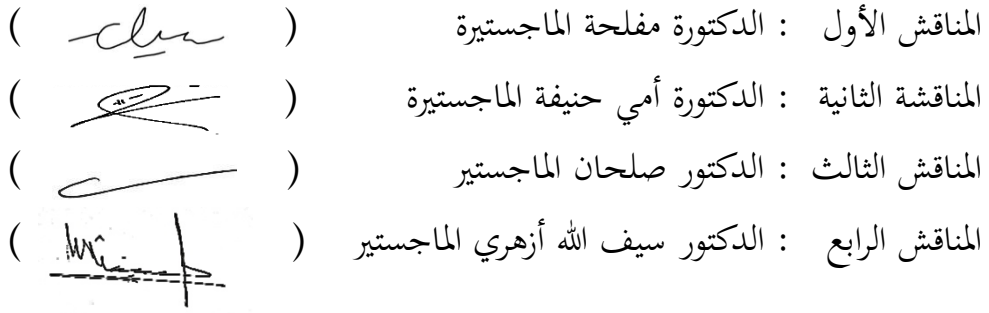 المناقش الأول : الدكتورة مفلحة الماجستيرة ( )
المناقشة الثانية : الدكتورة أمي حنيفة الماجستيرة ( )
المناقش الثالث : الدكتور صلحان الماجستير ( )
المناقش الرابع : الدكتور سيف الله أزهري الماجستير ( )